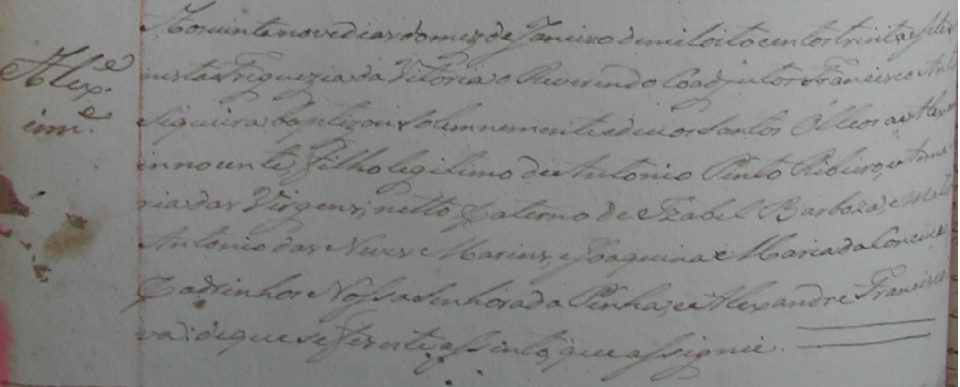 Alex.e
inn.e
Aos vinte nove dias do mez de Janeiro de mil oito centos trinta e sete
nesta Freguezia da Vitoria o Reverendo Coadjutor Francisco Anto
Siqueira baptizou solemnemente e deu os Santos Olleos a Alexan
innocente, filho legitimo de Antonio Pinto Ribeiro, e Anna
ria das Virgens; netto Paterno de Izabel Barboza, e Mat
Antonio das Neves Marins, e Joaquina Maria da Concei
Padrinhos Nossa Senhora da Penha, e Alexandre Francisco
va: de que se fez este assento, que assignei.